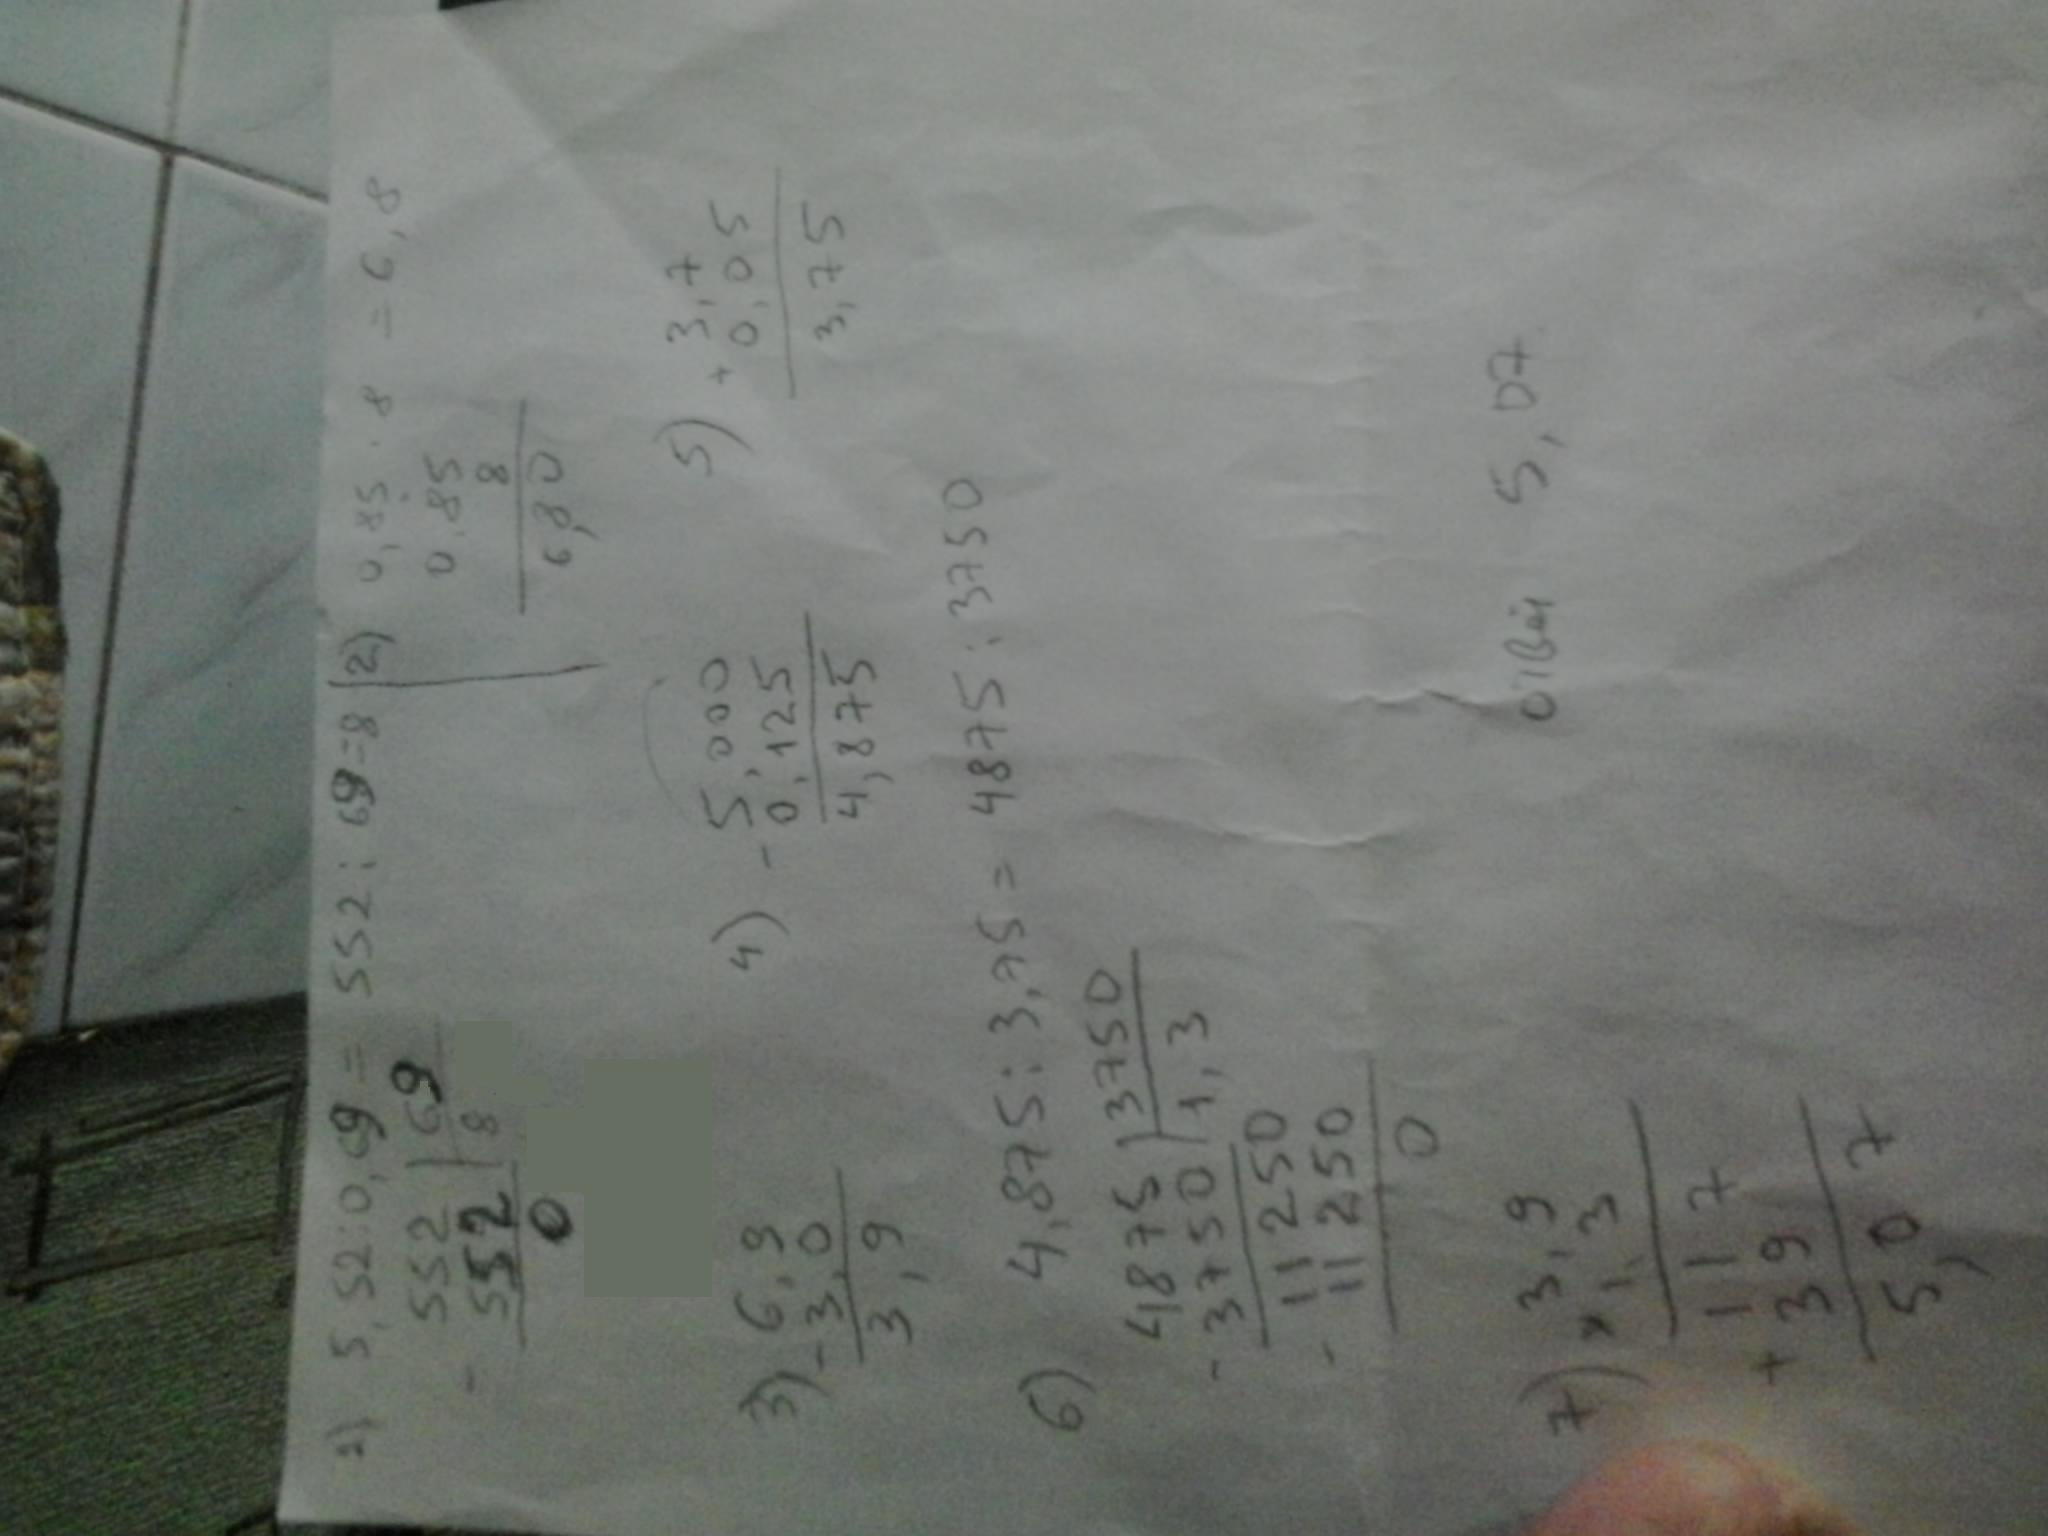 1) 5,52:0,69 = 552:69=8
552 | 69
- 552 | 8
0
2) 0,85 · 8 = 6,8
0,85
8
6,80
3) 6,9
- 3,0
3,9
4) - 5,000
0,125
4,875
5) + 3,7
0,05
3,75
6) 4,875:3,75 = 4875:3750
4875 | 3750
- 3750 | 1,3
11250
- 11250
0
7) 3,9
× 1,3
117
+ 39
5,07
5,07